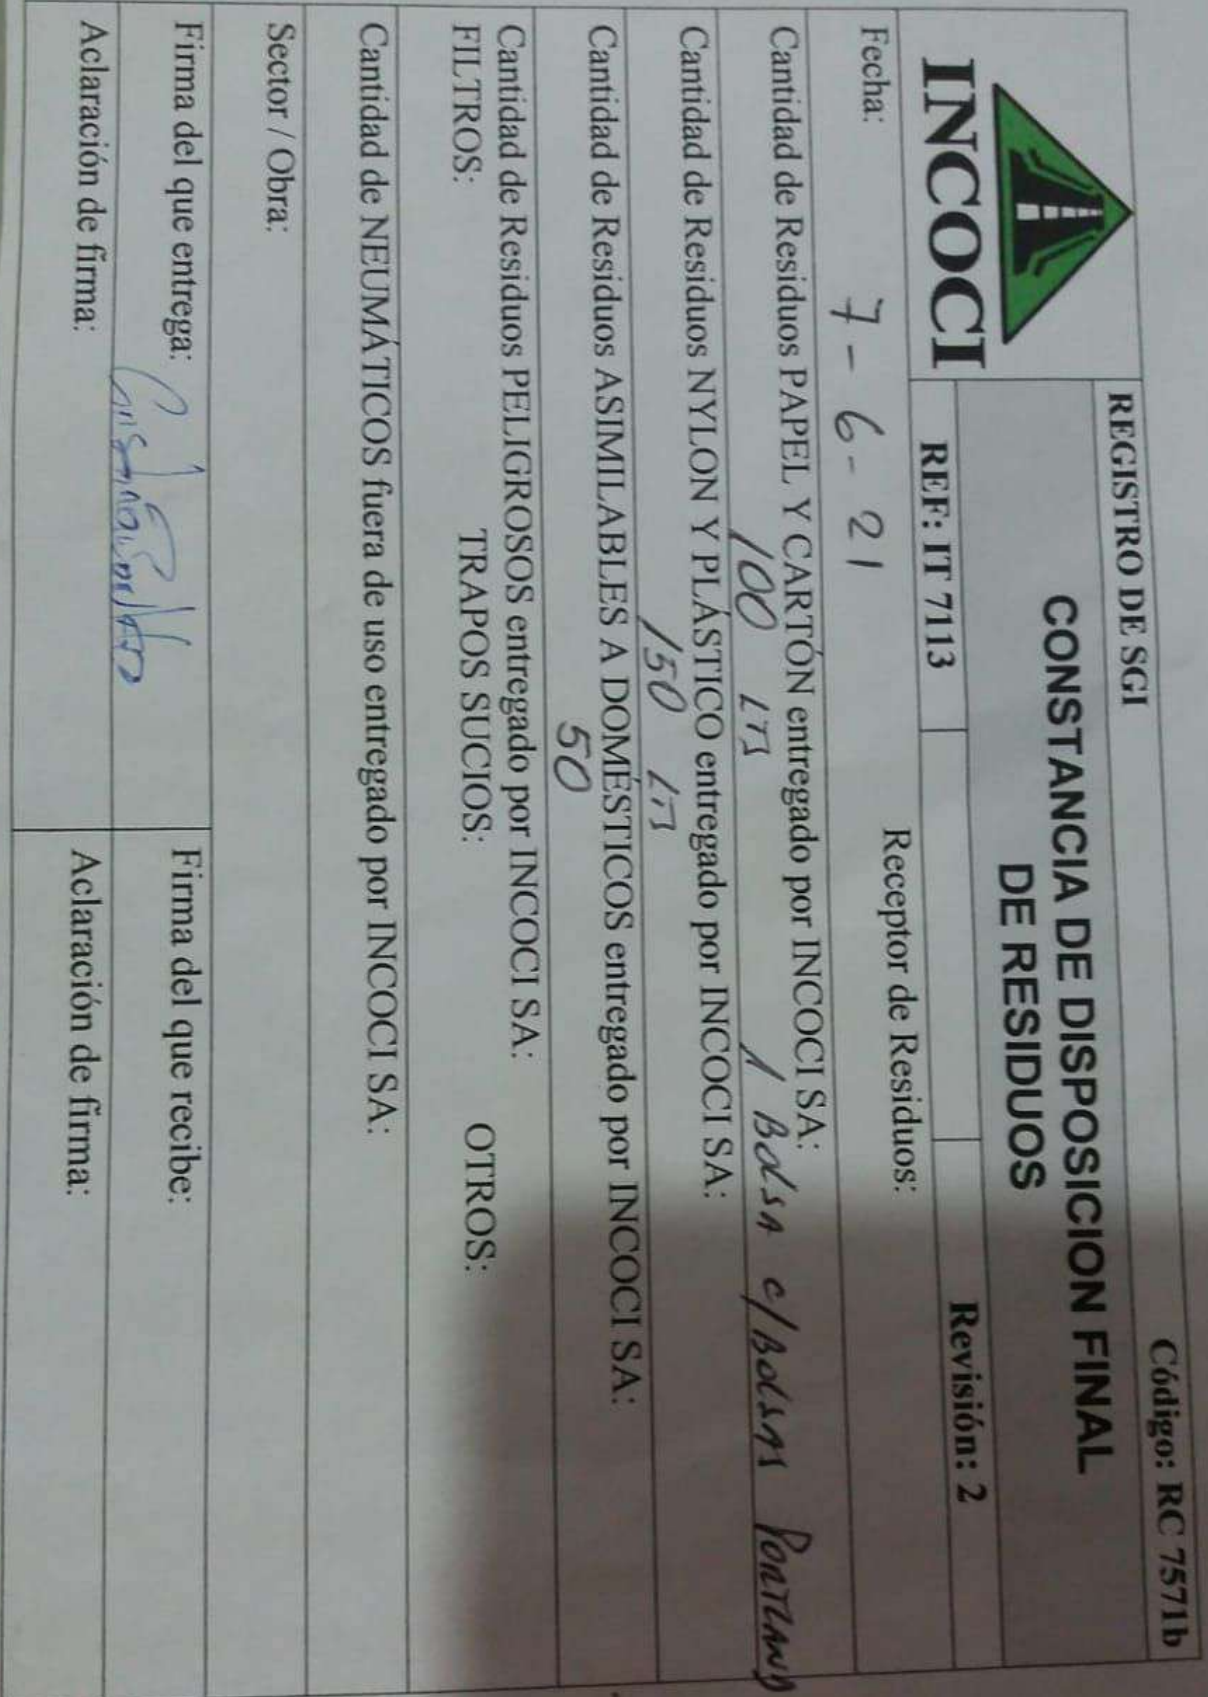 REGISTRO DE SGI Código: RC 7571b
INCOCI
CONSTANCIA DE DISPOSICION FINAL
DE RESIDUOS
REF: IT 7113 Revisión: 2
Fecha: 7-6-21 Receptor de Residuos:
Cantidad de Residuos PAPEL Y CARTÓN entregado por INCOCI SA:
100 LTS 1 BOLSA c/BOLSAS PORTLAND
Cantidad de Residuos NYLON Y PLÁSTICO entregado por INCOCI SA:
150 LTS
Cantidad de Residuos ASIMILABLES A DOMÉSTICOS entregado por INCOCI SA:
50
Cantidad de Residuos PELIGROSOS entregado por INCOCI SA:
FILTROS: TRAPOS SUCIOS: OTROS:
Cantidad de NEUMÁTICOS fuera de uso entregado por INCOCI SA:
Sector / Obra:
Firma del que entrega: Firma del que recibe:
Aclaración de firma: Aclaración de firma: